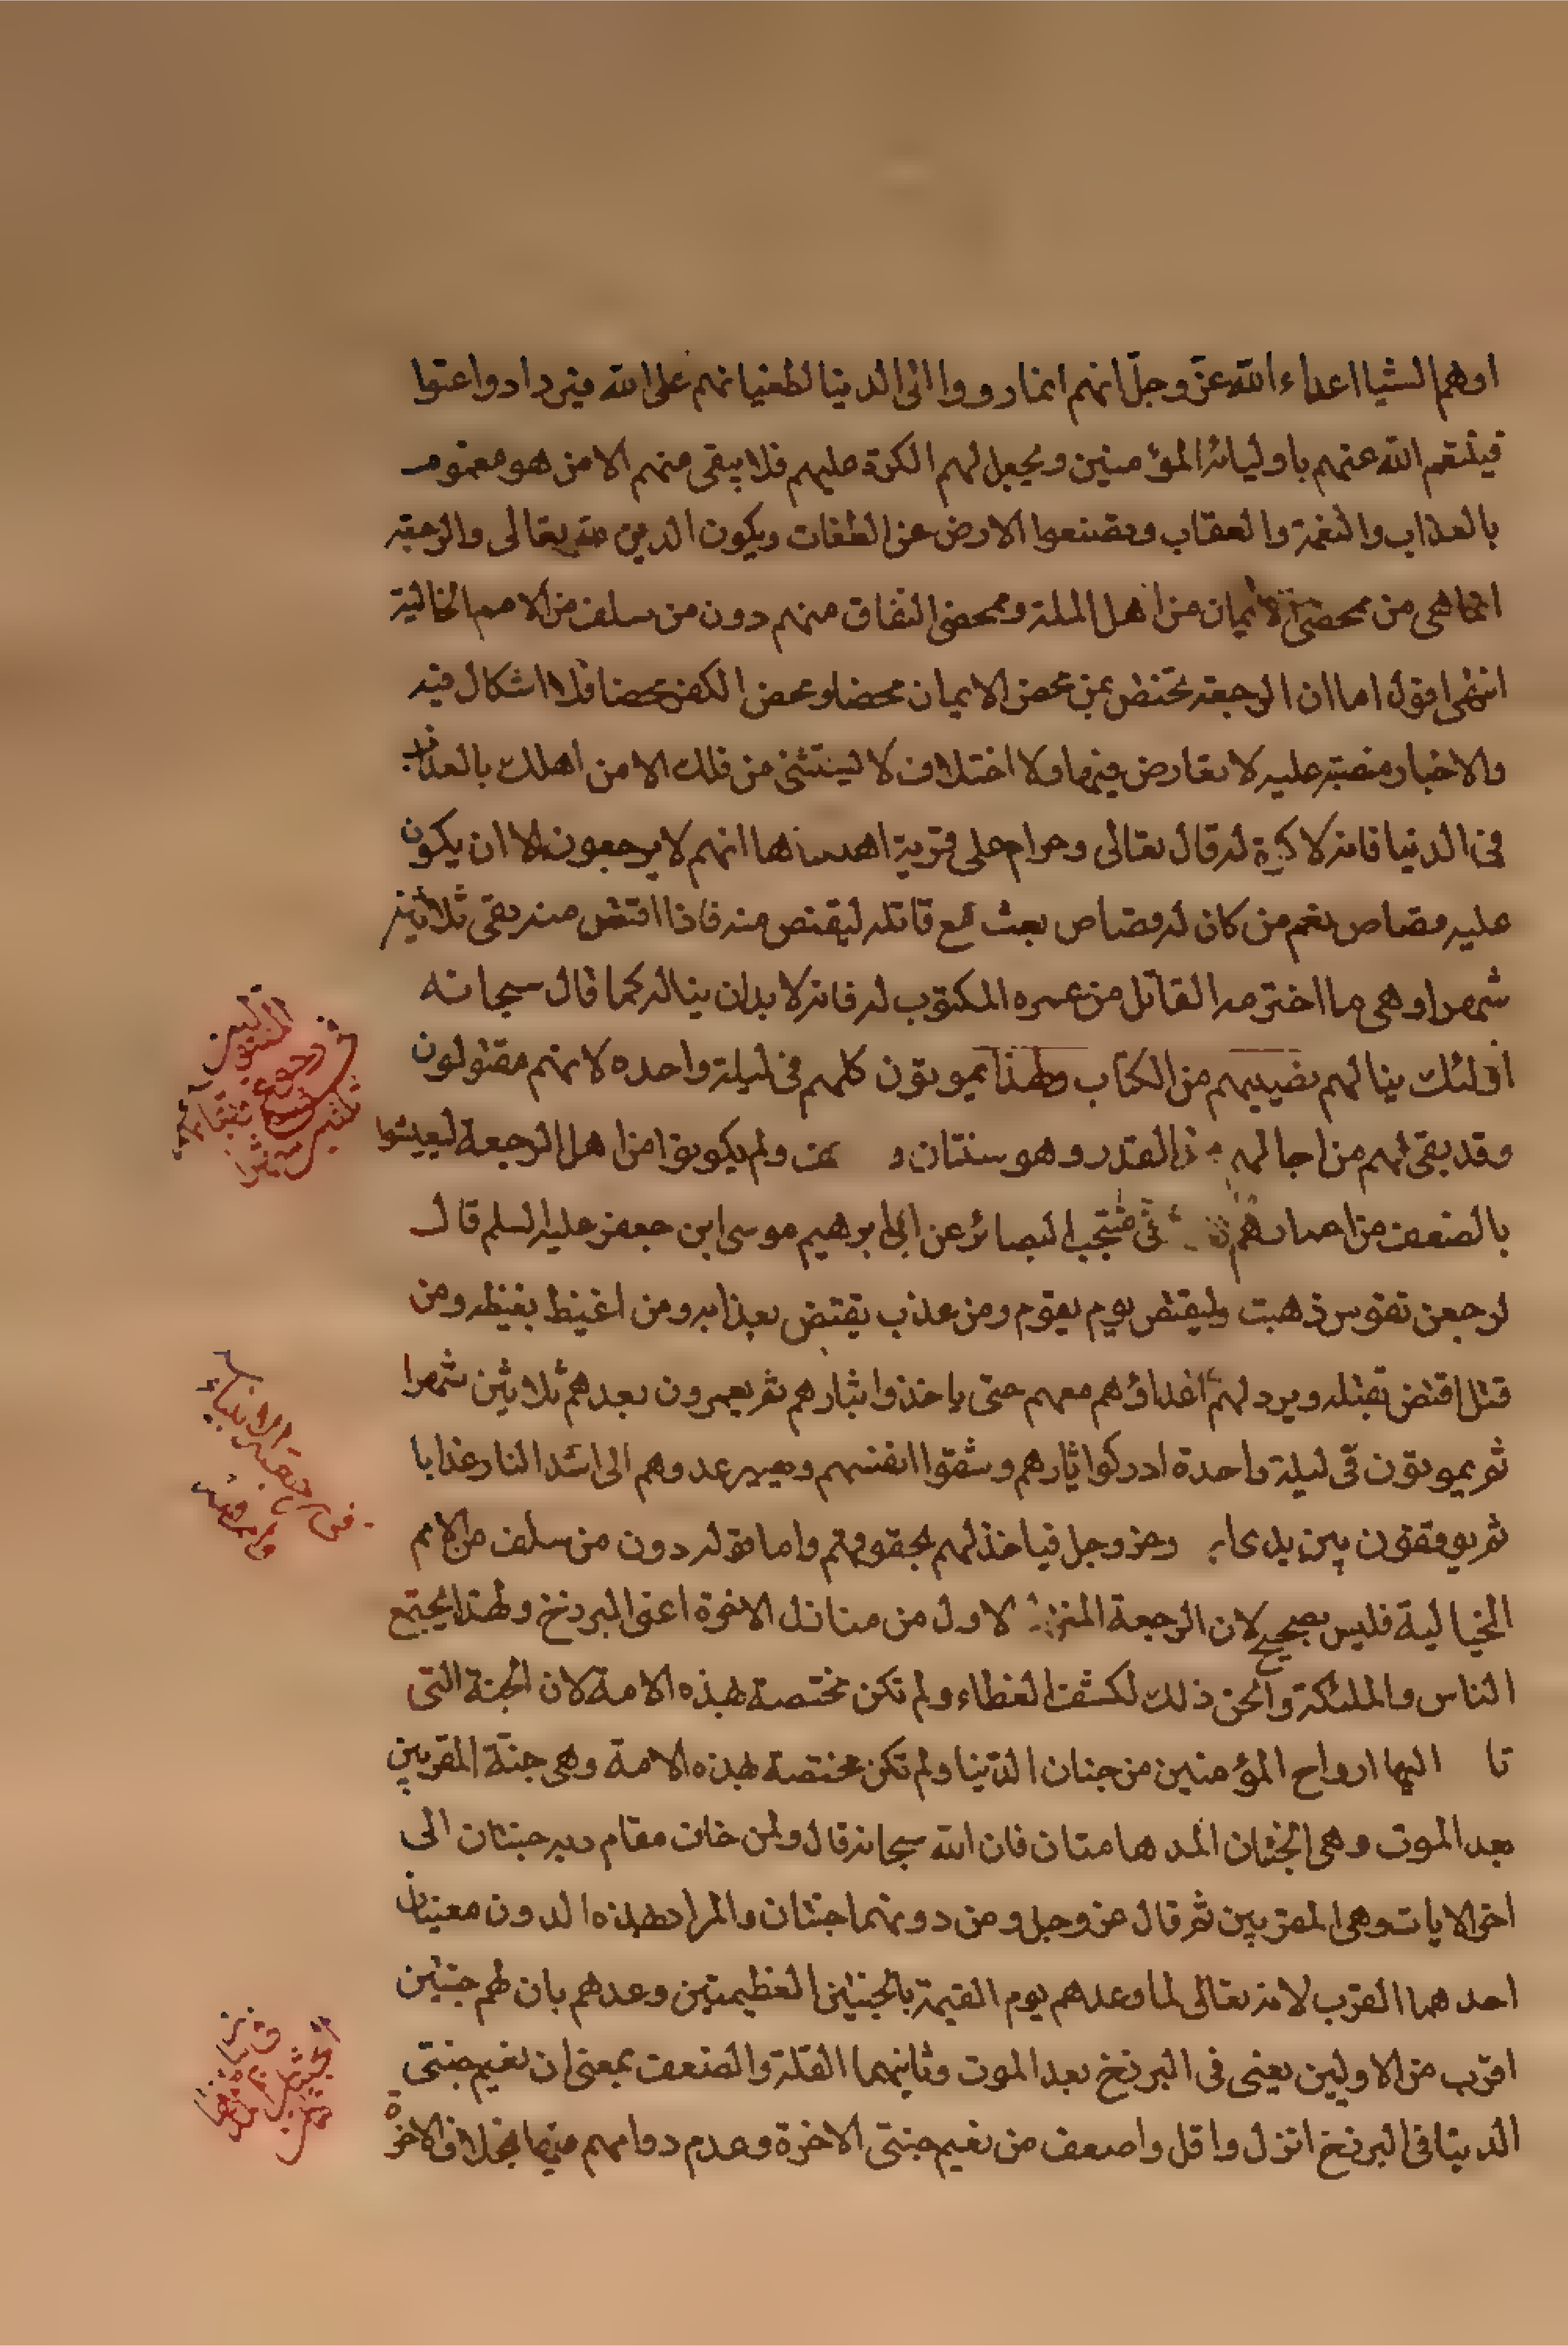 اوهم الشيا اعداء الله عزّ وجلّ انهم انما ردوا الى الدنيا لطغيانهم على الله فيزدادوا عتوا
فينتقم الله عنهم باوليائه المؤمنين ويجعل لهم الكرة عليهم فلا يبقى منهم الا من هو مغموم
بالعذاب والنغمة والعقاب وتصفوا الارض عن الطغات ويكون الدين لله تعالى والرجعة
انما هي من محضى الايمان من اهل الملة وممحضى النفاق منهم دون من سلف من الامم الخالية
انتهى اقول اما ان الرجعة تختص بمن محض الايمان محضا ومحض الكفر محضا فلا اشكال فيه
والاخبار منصبة عليه لا تعارض فيها ولا اختلاف لا يستثنى من ذلك الا من اهلك بالعذاب
فى الدنيا فانه لا كرة له قال تعالى وحرام على قرية اهلكناها انهم لا يرجعون الا ان يكون
عليه قصاص نعم من كان له قصاص بعث مع قاتله ليقتص منه فاذا اقتص منه بقى ثلاثين
شهرا وهي ما اخترمه القاتل من عمره المكتوب له فانه لا بد ان يناله كما قال سبحانه
اولئك ينالهم نصيبهم من الكتاب ولهذا يموتون كلهم فى ليلة واحده لانهم مقتولون
وقد بقى لهم من اجالهم هذا القدر وهو سنتان و نصف ولم يكونوا من اهل الرجعة ليعيشوا
بالضعف من اعمارهم فى منتجب البصائر عن ابى ابرهيم موسى ابن جعفر عليه السلم قال
لترجعن نفوس ذهبت وليقتص يوم يقوم ومن عذب يقتص بعذابه ومن اغيظ بغيظه ومن
قتل اقتص بقتله ويرد لهم اعداؤهم معهم حتى ياخذوا بثارهم ثم يعمرون بعدهم ثلاثين شهرا
ثم يموتون فى ليلة واحدة ادركوا ثارهم وشفوا انفسهم ويصير عدوهم الى اشد النار عذابا
ثم يوقفون بين يدى الله عز وجل فياخذ لهم بحقوقهم واما قوله دون من سلف من الامم
الخيالية فليس بصحيح لان الرجعة المنزل الاول من منازل الاخرة اعنى البرزخ ولهذا يجتمع
الناس والملئكة والجن ذلك لكشف الغطاء ولم تكن مختصة بهذه الامة لان الجنة التى
تا اليها ارواح المؤمنين من جنان الدّنيا ولم تكن مختصة بهذه الامة وهى جنّة المقربين
بعد الموت وهى الجنتان المدهامتان فان الله سبحانه قال ولمن خاف مقام ربه جنتان الى
اخر الايات وهى المقربين ثم قال عز وجل ومن دونهما جنتان والمراد بهذه الدون معنيان
احدهما القرب لانه تعالى لما وعدهم يوم القيمة بالجنتين العظيمتين وعدهم بان لهم جنتين
اقرب من الاوليين يعنى فى البرزخ بعد الموت وثانيهما القلة والضعف بمعنى ان نعيم جنتى
الدنيا فى البرزخ انزل واقل واضعف من نعيم جنتى الاخرة وعدم دوامهم فيها بخلاف الاخرة
فى رجوع المقتولين
فى رجعة الانبياء